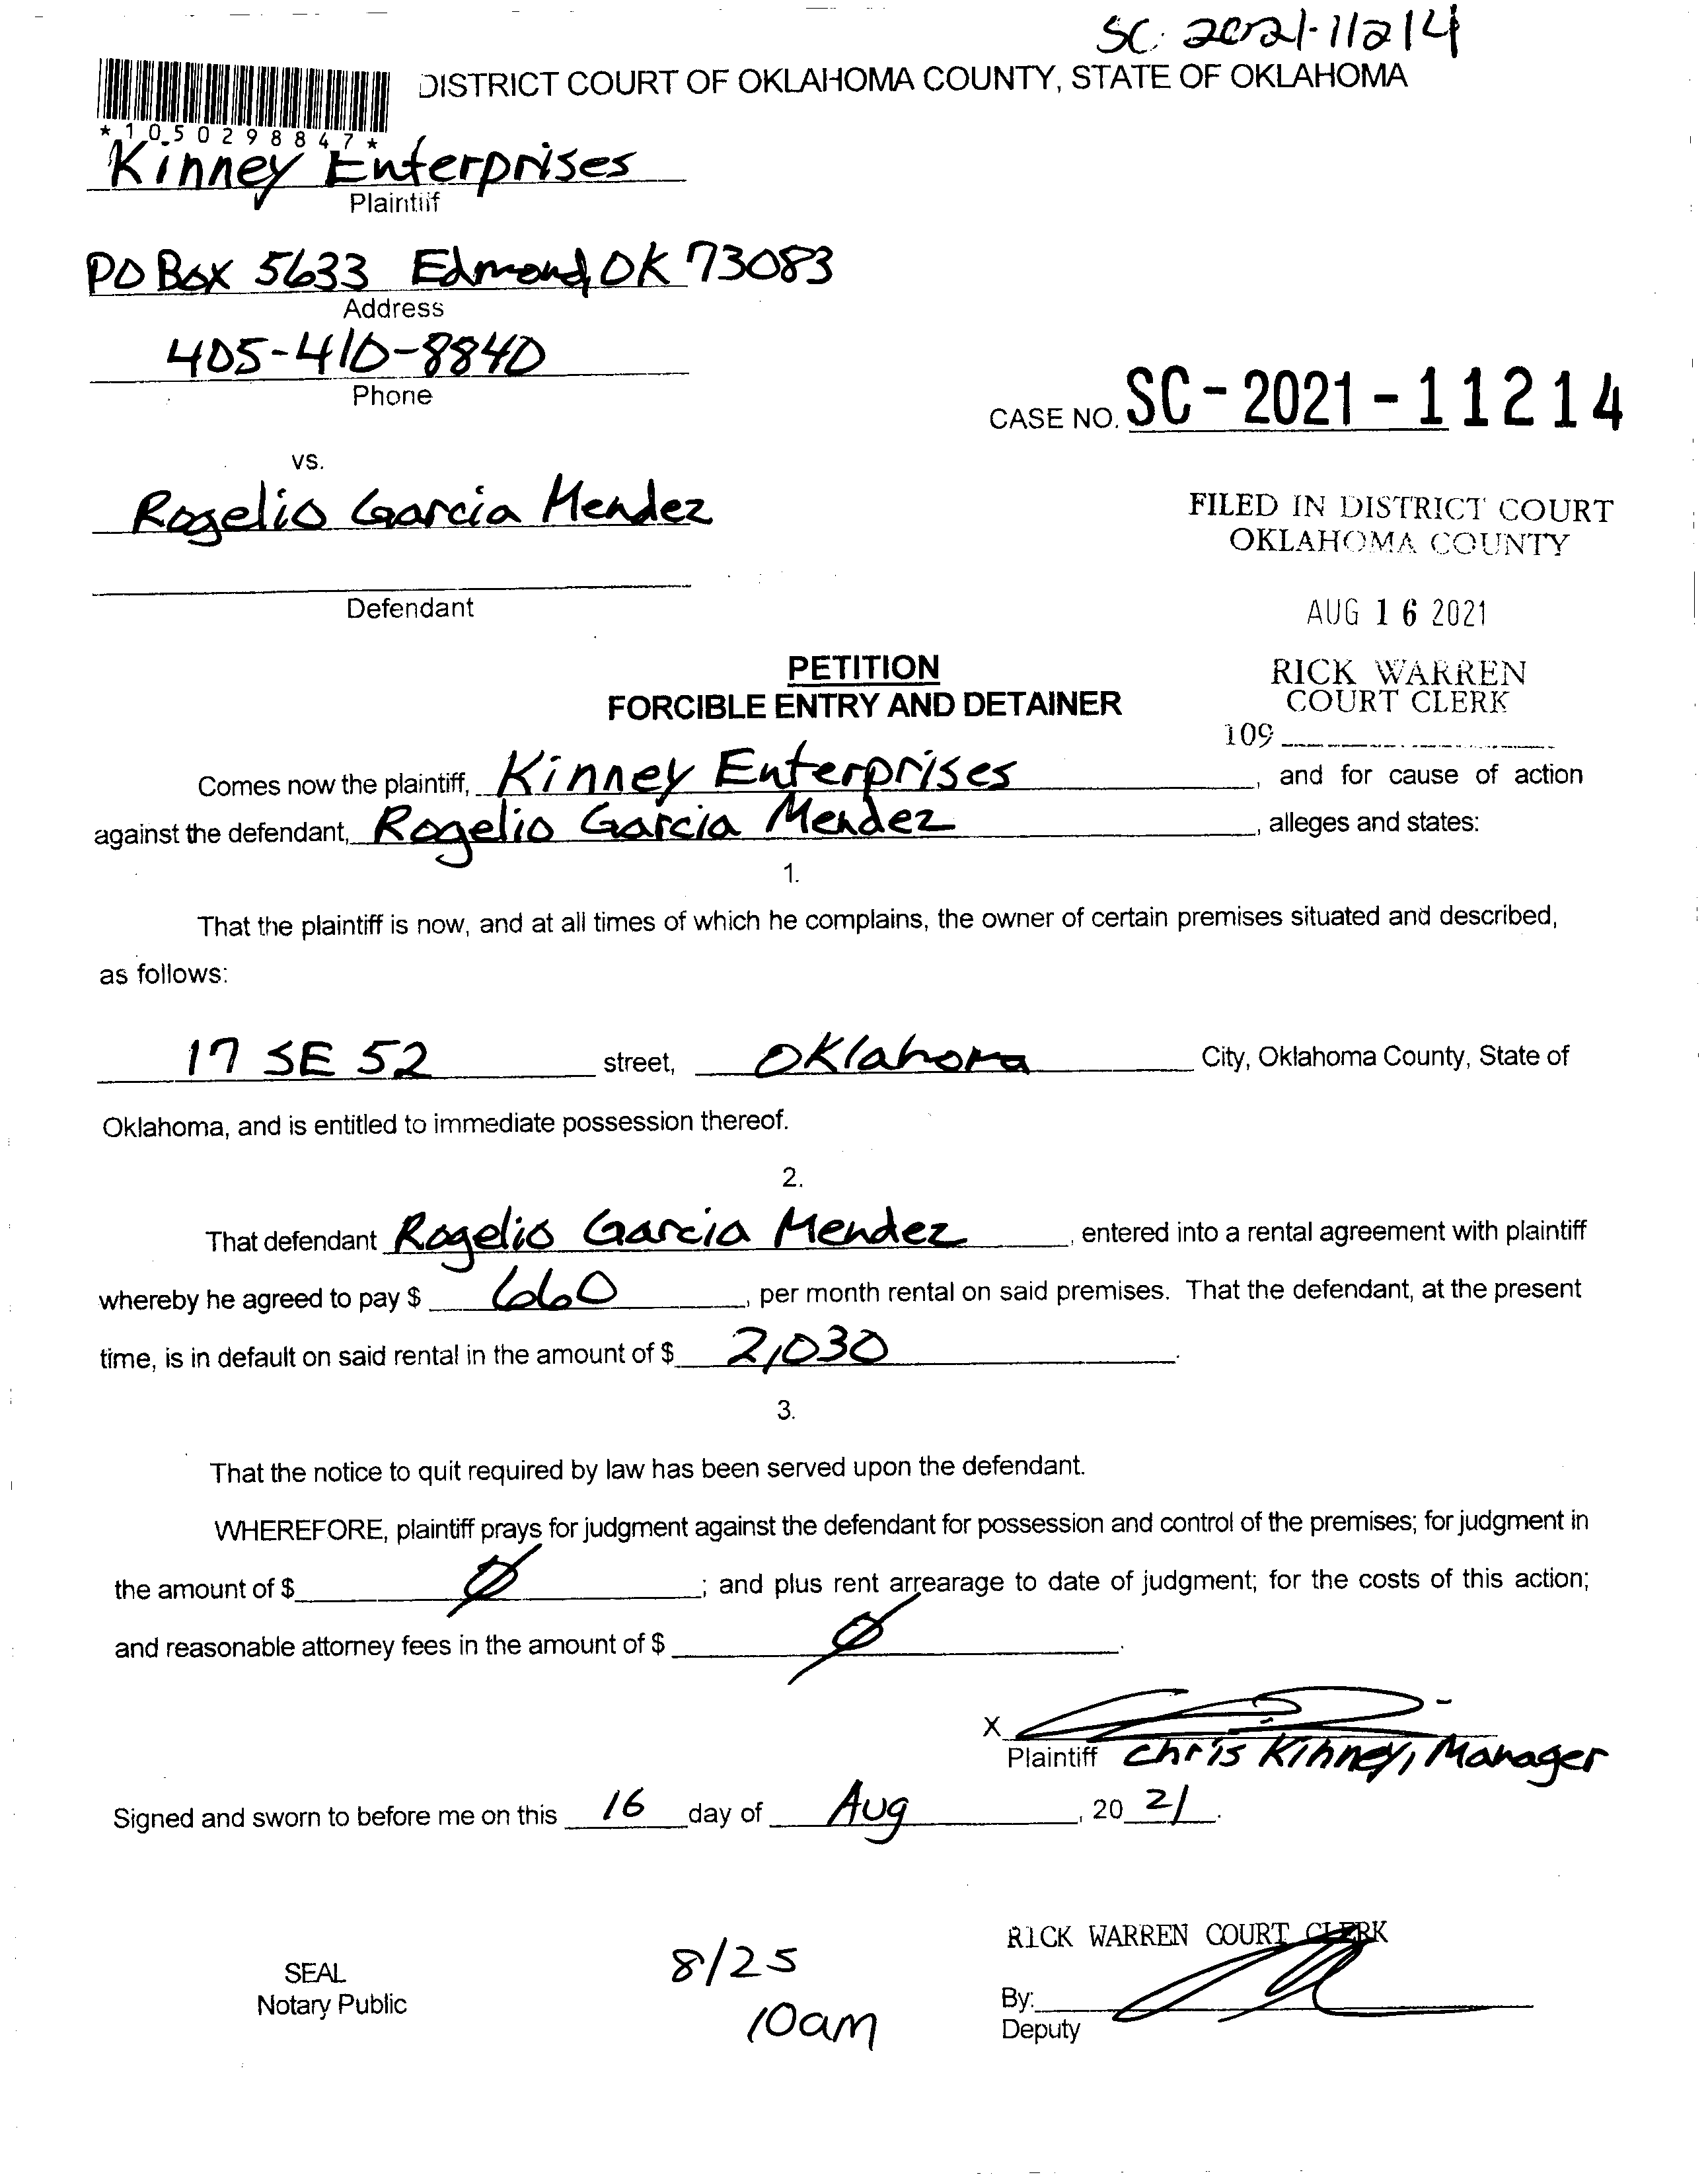 SC 2021-11214
DISTRICT COURT OF OKLAHOMA COUNTY, STATE OF OKLAHOMA
*1050298847*
Kinney Enterprises
Plaintiff
PO Box 5633 Edmond, OK 73083
Address
405-410-8840
Phone
CASE NO. SC-2021-11214
vs.
Rogelio Garcia Mendez
FILED IN DISTRICT COURT
OKLAHOMA COUNTY
Defendant
AUG 16 2021
PETITION
RICK WARREN
FORCIBLE ENTRY AND DETAINER
COURT CLERK
109
Comes now the plaintiff, Kinney Enterprises, and for cause of action
against the defendant, Rogelio Garcia Mendez, alleges and states:
1.
That the plaintiff is now, and at all times of which he complains, the owner of certain premises situated and described,
as follows:
17 SE 52 street, Oklahoma City, Oklahoma County, State of
Oklahoma, and is entitled to immediate possession thereof.
2.
That defendant Rogelio Garcia Mendez, entered into a rental agreement with plaintiff
whereby he agreed to pay $ 660, per month rental on said premises. That the defendant, at the present
time, is in default on said rental in the amount of $ 2,030.
3.
That the notice to quit required by law has been served upon the defendant.
WHEREFORE, plaintiff prays for judgment against the defendant for possession and control of the premises; for judgment in
the amount of $ Ø; and plus rent arrearage to date of judgment; for the costs of this action;
and reasonable attorney fees in the amount of $ Ø.
X
Plaintiff Chris Kinney, Manager
Signed and sworn to before me on this 16 day of Aug, 20 21.
RICK WARREN COURT CLERK
SEAL
8/25
Notary Public
By:
10am
Deputy